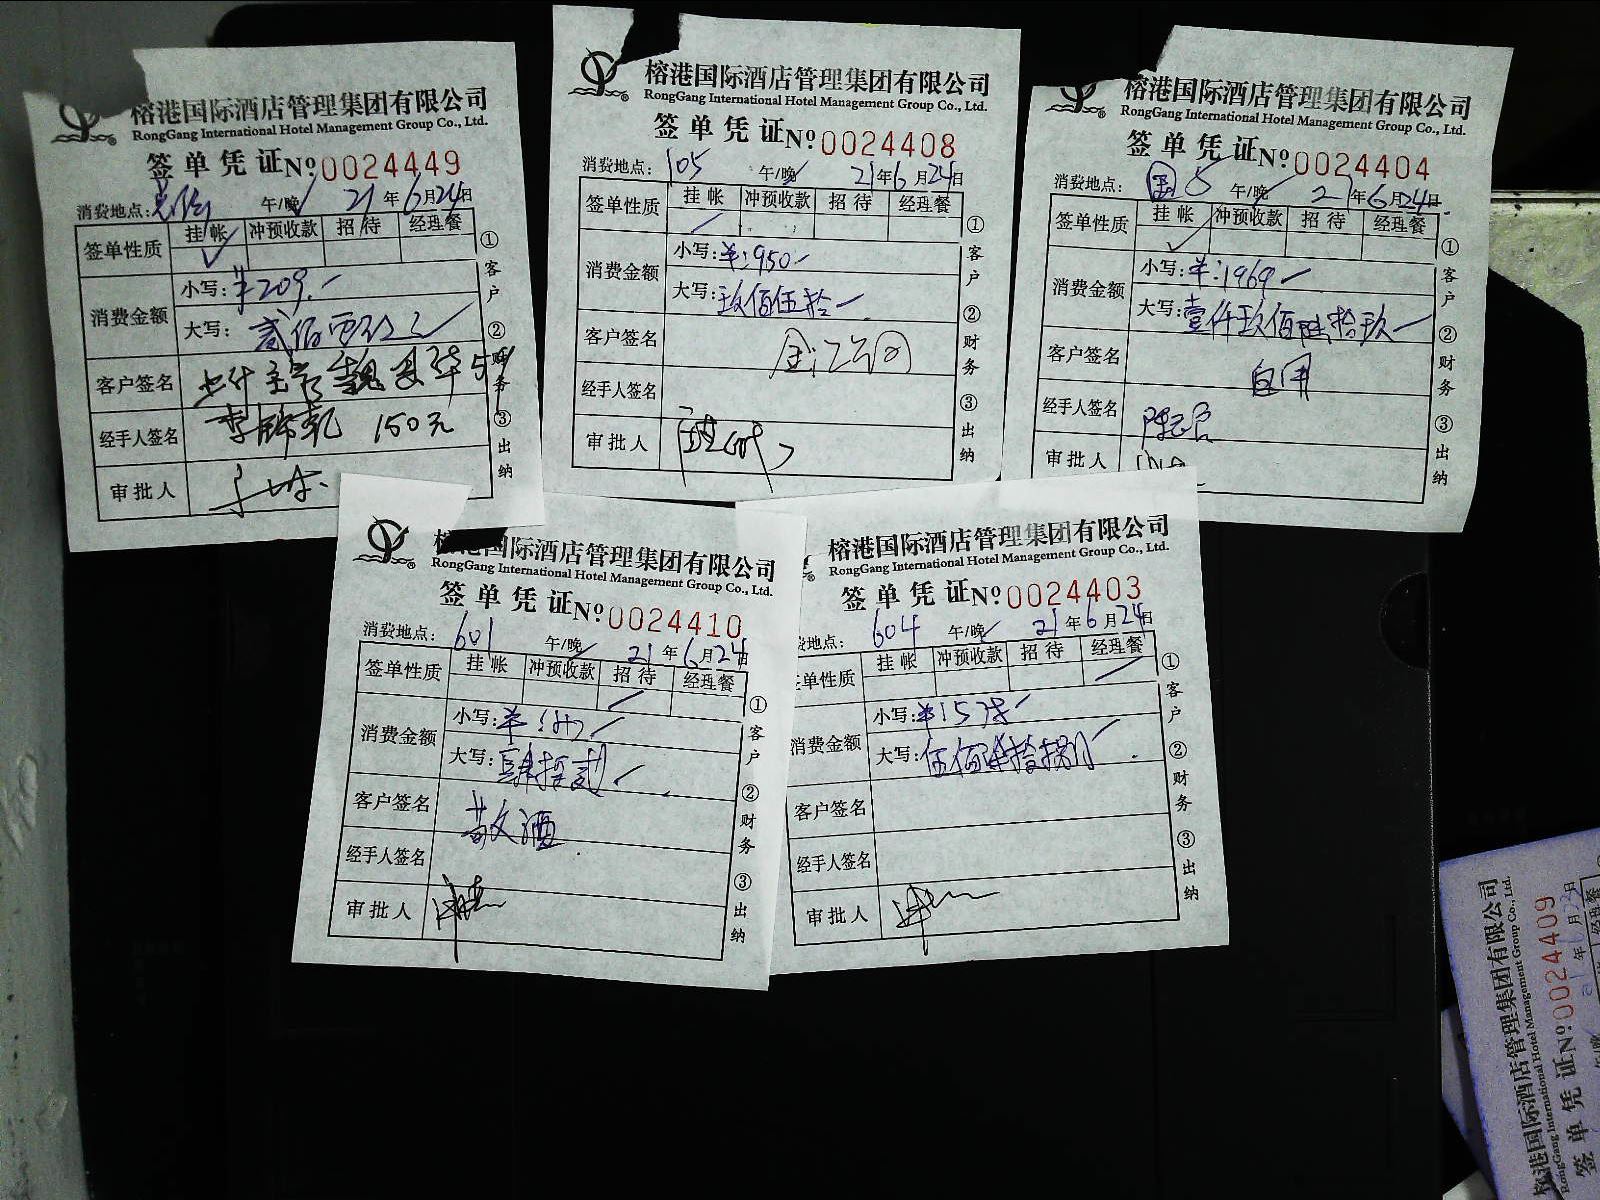 榕港国际酒店管理集团有限公司
RongGang International Hotel Management Group Co., Ltd.
签单凭证 No. 0024449
消费地点: 午/晚 21年6月24日
签单性质 挂帐 冲预收款 招待 经理餐
消费金额 小写: ¥209.-
大写:
客户签名
经手人签名 150元
审批人
①客户 ②财务 ③出纳
榕港国际酒店管理集团有限公司
RongGang International Hotel Management Group Co., Ltd.
签单凭证 No. 0024408
消费地点: 105 午/晚 21年6月24日
签单性质 挂帐 冲预收款 招待 经理餐
消费金额 小写: ¥:950-
大写: 玖佰伍拾
客户签名
经手人签名
审批人
①客户 ②财务 ③出纳
榕港国际酒店管理集团有限公司
RongGang International Hotel Management Group Co., Ltd.
签单凭证 No. 0024404
消费地点: 国5 午/晚 21年6月24日
签单性质 挂帐 冲预收款 招待 经理餐
消费金额 小写: ¥:1969-
大写: 壹仟玖佰陆拾玖
客户签名 自用
经手人签名
审批人
①客户 ②财务 ③出纳
榕港国际酒店管理集团有限公司
RongGang International Hotel Management Group Co., Ltd.
签单凭证 No. 0024410
消费地点: 601 午/晚 21年6月24日
签单性质 挂帐 冲预收款 招待 经理餐
消费金额 小写: ¥:42
大写: 肆拾贰
客户签名 敬酒
经手人签名
审批人
①客户 ②财务 ③出纳
榕港国际酒店管理集团有限公司
RongGang International Hotel Management Group Co., Ltd.
签单凭证 No. 0024403
消费地点: 604 午/晚 21年6月24日
单性质 挂帐 冲预收款 招待 经理餐
消费金额 小写: ¥:578
大写: 伍佰柒拾捌
客户签名
经手人签名
审批人
①客户 ②财务 ③出纳
榕港国际酒店管理集团有限公司
RongGang International Hotel Management Group Co., Ltd.
签单凭证 No. 0024409